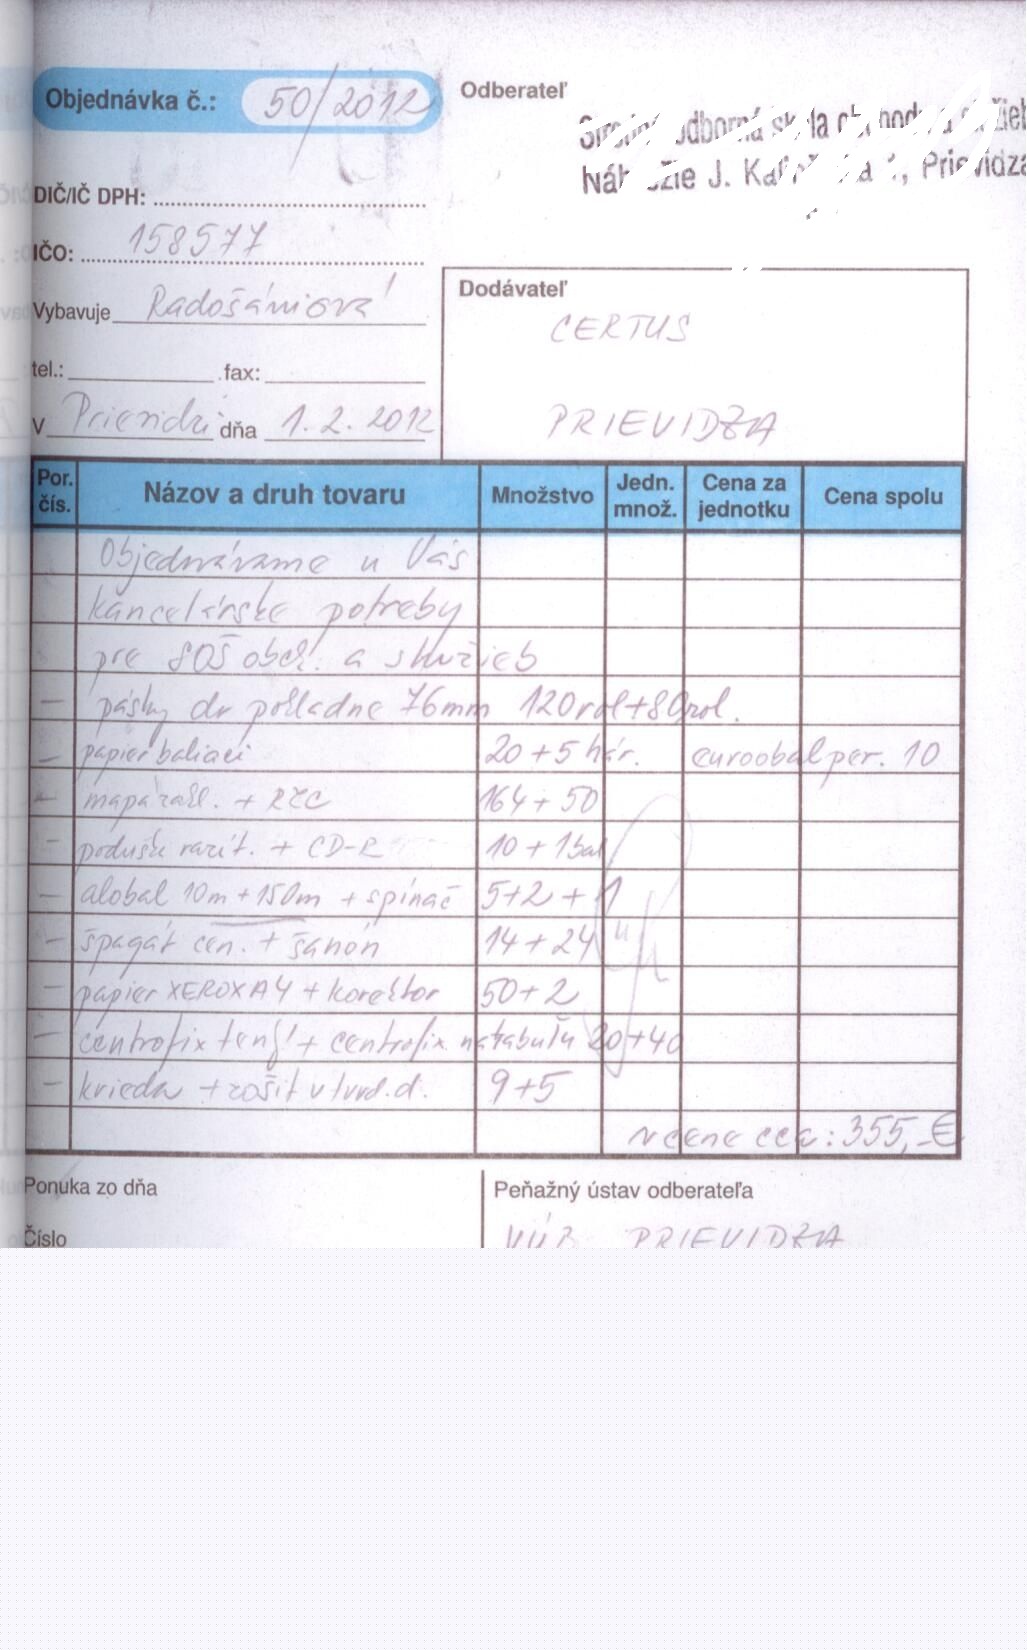 Objednávka č.: 50/2012
Odberateľ
Stredná odborná škola obchodu a služieb
Nábrežie J. Kalinčiaka 1, Prievidza
DIČ/IČ DPH:
IČO: 158577
Vybavuje Radošániová
tel.: fax:
V Prievidzi dňa 1. 2. 2012
Dodávateľ
CERTUS
PRIEVIDZA
Por. čís. Názov a druh tovaru Množstvo Jedn. množ. Cena za jednotku Cena spolu
Objednávame u Vás
kancelárske potreby
pre SOŠ obch. a služieb
– pásky do pokladne 76mm 120rol+80rol.
– papier baliaci 20+5 hár. euroobal per. 10
– mapa 164+50
– podušk. razít. + CD-R 10+1bal
– alobal 10m+150m + spínač 5+2+1
– špagát cen. + šanón 14+24
– papier XEROX A4 + korektor 50+2
– centrofix + centrofix na tabuľu 20+40
– krieda + zošit v tvrd. d. 9+5
v cene cca: 355,-€
Ponuka zo dňa
Peňažný ústav odberateľa
Číslo
VÚB PRIEVIDZA